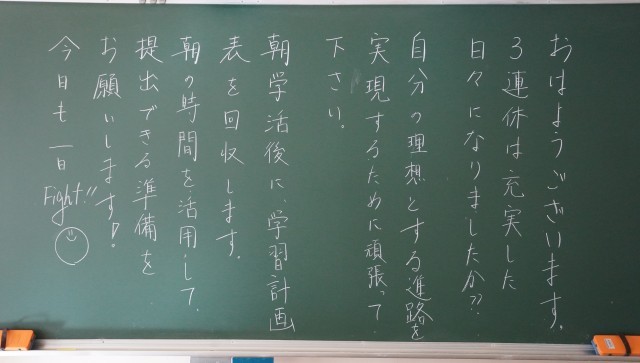 おはようございます。
3連休は充実した
日々になりましたか??
自分の理想とする進路を
実現するために頑張って
下さい。
朝学活後に、学習計画
表を回収します。
朝の時間を活用して、
提出できる準備を
お願いします!
今日も一日Fight!!